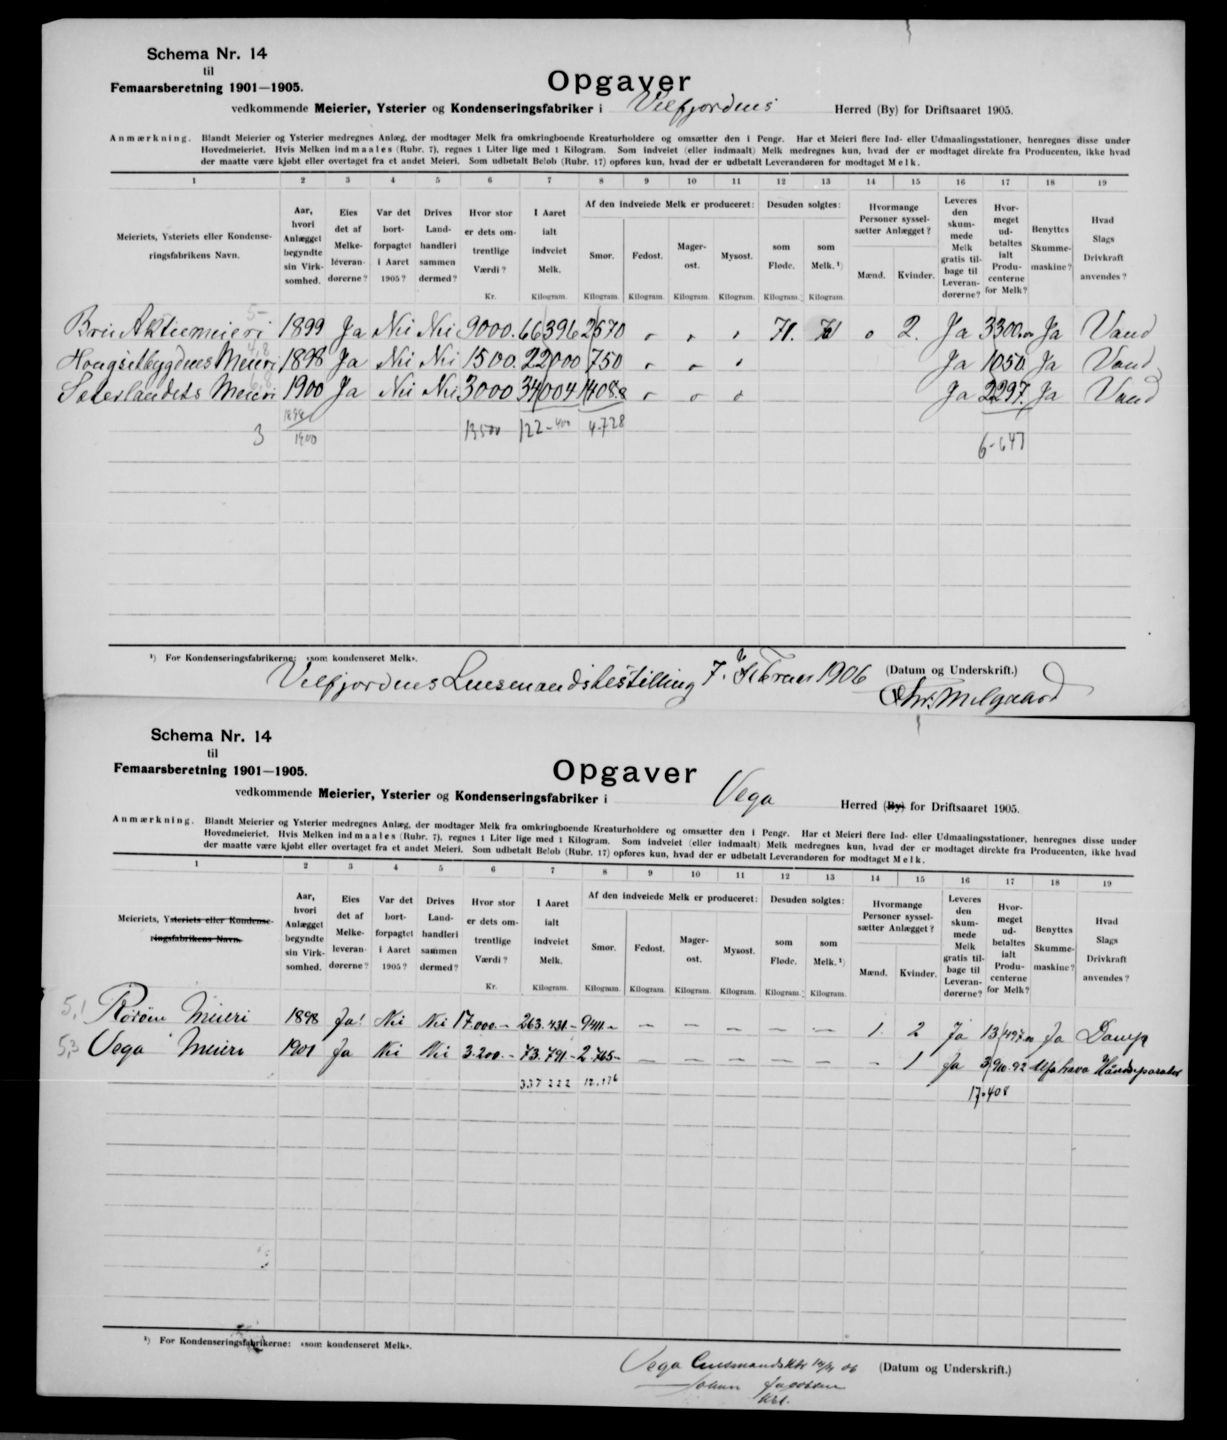 Schema Nr. 14
til
Femaarsberetning 1901—1905.
Opgaver
vedkommende Meierier, Ysterier og Kondenseringsfabriker i Velfjordens Herred (By) for Driftsaaret 1905.
Anmærkning. Blandt Meierier og Ysterier medregnes Anlæg, der modtager Melk fra omkringboende Kreaturholdere og omsætter den i Penge. Har et Meieri flere Ind- eller Udmaalingsstationer, henregnes disse under
Hovedmeieriet. Hvis Melken indmaales (Rubr. 7), regnes 1 Liter lige med 1 Kilogram. Som indveiet (eller indmaalt) Melk medregnes kun, hvad der er modtaget direkte fra Producenten, ikke hvad
der maatte være kjøbt eller overtaget fra et andet Meieri. Som udbetalt Beløb (Rubr. 17) opføres kun, hvad der er udbetalt Leverandøren for modtaget Melk.
1 2 3 4 5 6 7 8 9 10 11 12 13 14 15 16 17 18 19
Meieriets, Ysteriets eller Kondenseringsfabrikens Navn.
Aar, hvori Anlægget begyndte sin Virksomhed.
Eies det af Melkeleverandørerne?
Var det bortforpagtet i Aaret 1905?
Drives Landhandleri sammen dermed?
Hvor stor er dets omtrentlige Værdi? Kr.
I Aaret ialt indveiet Melk. Kilogram.
Af den indveiede Melk er produceret:
Smør. Kilogram.
Fedost. Kilogram.
Magerost. Kilogram.
Mysost. Kilogram.
Desuden solgtes:
som Fløde. Kilogram.
som Melk. ¹) Kilogram.
Hvormange Personer sysselsætter Anlægget?
Mænd.
Kvinder.
Leveres den skummede Melk gratis tilbage til Leverandørerne?
Hvormeget udbetaltes ialt Producenterne for Melk?
Benyttes Skummemaskine?
Hvad Slags Drivkraft anvendes?
Aktiemeieri 1899 Ja Nei Nei 9000. 66396 2570 71. 0 2. Ja 3300.00 Ja Vand
Meieri 1898 Ja Nei Nei 1500. 22000 750 Ja 1050 Ja Vand
Meieri 1900 Ja Nei Nei 3000 34004 1408.8 Ja 2297. Ja Vand
3 1898/1900 13500 122-400 4.728 6.647
¹) For Kondenseringsfabrikerne: «som kondenseret Melk».
Velfjordens Lensmandsbestilling 7. Februar 1906 (Datum og Underskrift.)
Schema Nr. 14
til
Femaarsberetning 1901—1905.
Opgaver
vedkommende Meierier, Ysterier og Kondenseringsfabriker i Vega Herred (By) for Driftsaaret 1905.
Anmærkning. Blandt Meierier og Ysterier medregnes Anlæg, der modtager Melk fra omkringboende Kreaturholdere og omsætter den i Penge. Har et Meieri flere Ind- eller Udmaalingsstationer, henregnes disse under
Hovedmeieriet. Hvis Melken indmaales (Rubr. 7), regnes 1 Liter lige med 1 Kilogram. Som indveiet (eller indmaalt) Melk medregnes kun, hvad der er modtaget direkte fra Producenten, ikke hvad
der maatte være kjøbt eller overtaget fra et andet Meieri. Som udbetalt Beløb (Rubr. 17) opføres kun, hvad der er udbetalt Leverandøren for modtaget Melk.
1 2 3 4 5 6 7 8 9 10 11 12 13 14 15 16 17 18 19
Meieriets, Ysteriets eller Kondenseringsfabrikens Navn.
Aar, hvori Anlægget begyndte sin Virksomhed.
Eies det af Melkeleverandørerne?
Var det bortforpagtet i Aaret 1905?
Drives Landhandleri sammen dermed?
Hvor stor er dets omtrentlige Værdi? Kr.
I Aaret ialt indveiet Melk. Kilogram.
Af den indveiede Melk er produceret:
Smør. Kilogram.
Fedost. Kilogram.
Magerost. Kilogram.
Mysost. Kilogram.
Desuden solgtes:
som Fløde. Kilogram.
som Melk. ¹) Kilogram.
Hvormange Personer sysselsætter Anlægget?
Mænd.
Kvinder.
Leveres den skummede Melk gratis tilbage til Leverandørerne?
Hvormeget udbetaltes ialt Producenterne for Melk?
Benyttes Skummemaskine?
Hvad Slags Drivkraft anvendes?
5,1 Rørøen Meieri 1898 Ja! Nei Nei 17.000.- 263.431- 9411- — — — — — 1 2 Ja 13497 Ja Damp
5,3 Vega Meieri 1901 Ja Nei Nei 3.200.- 73.791- 2.765- — — — — — - 1 Ja 3910.92
337 222 12.176 17.408
¹) For Kondenseringsfabrikerne: «som kondenseret Melk».
Vega Lensmandsktr 14/4 06 (Datum og Underskrift.)
Johan Jacobsen